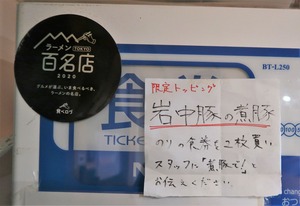 ラーメン TOKYO
百名店
2020
グルメが選ぶ、いま食べるべき、
ラーメンの名店。
食べログ
BT-L250
食券
TICKE
限定トッピング
岩中豚の煮豚
のりの食券を2枚買い
スタッフに「煮豚で!」と
お伝えください。
chang
おつ